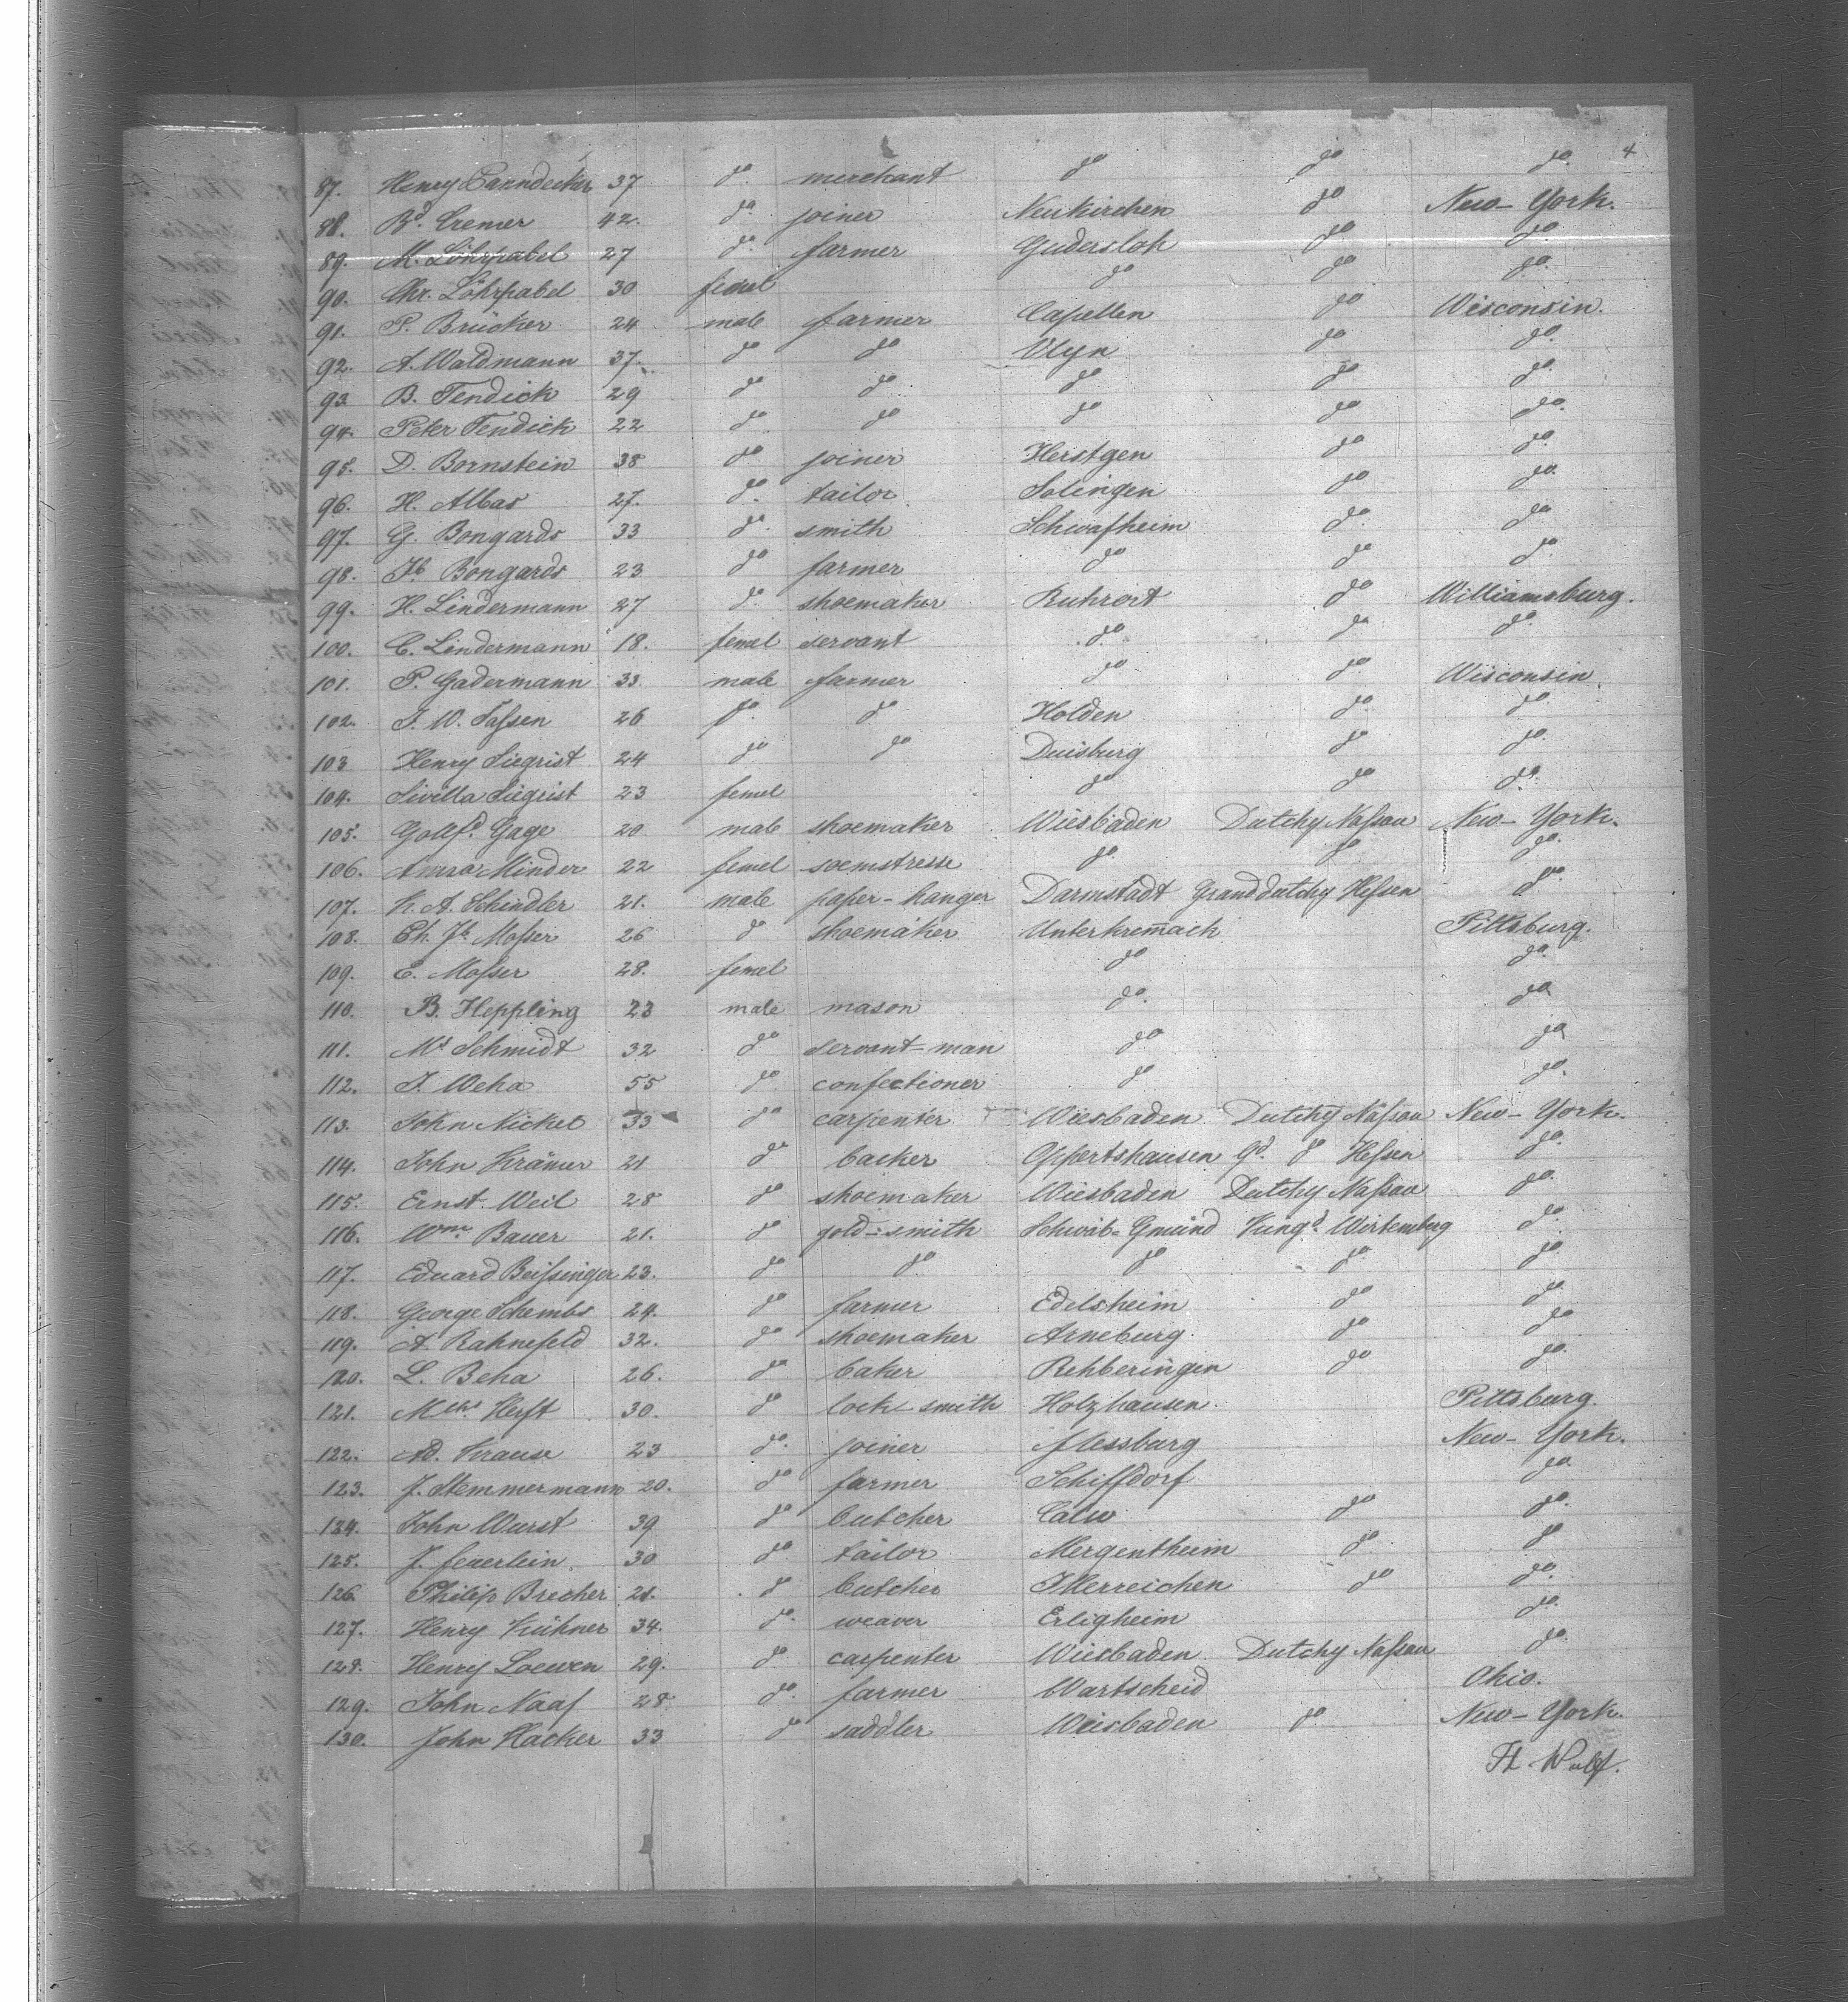 4
87. Henry Carndecker 37 do. merchant do do do.
88. Bd. Cremer 42. do. joiner Neukirchen do New-York.
89. M. Löhrpabel 27 do. farmer Gudersloh do do.
90. Chr. Löhrpabel 30 femel do do do.
91. P. Brücker 24 male farmer Capellen do Wisconsin.
92. A. Waldmann 37. do do Vlyn do do.
93 B. Tendick 29 do do. do. do do.
94. Peter Tendick 22 do. do do do do.
95. D. Bornstein 38 do. joiner Herstgen do do.
96. H. Albas 27. do. tailor Solingen do do.
97. G. Bongards 33 do. smith Schwafheim do. do
98. Jb Bongards 23 do farmer do do do.
99. H. Lindermann 27 do. shoemaker Ruhrort do Williamsburg.
100. C. Lindermann 18. femel servant do. do do.
101. P. Gadermann 33 male farmer do do. Wisconsin.
102. J. W. Jassen 26 do. do. Holden do. do.
103 Henry Siegrist 24 do do Duisburg do do.
104. Sivilla Siegrist 23 femel do do do.
105. Gottfd. Gage 20 male shoemaker Wiesbaden Dutchy Nassau New-York.
106. Anna Minder 22 femel soemstresse do. do do.
107. K. A. Schindler 21. male paper-hanger Darmstadt Granddutchy Hessen do.
108. Ch. Jb Mosser 26 do shoemaker Unterkremach Pittsburg.
109. E. Mosser 28. femel do do.
110. B. Heppling 23 male mason do. do
111. Ms Schmidt 32 do servant-man do do
112. J. Weha 55 do. confectioner do do.
113. John Nickel 33 do carpenter Wiesbaden Dutchy Nassau New-York.
114. John Krämer 21 do backer Oppertshausen Gd. do Hessen do.
115. Ernst Weil 28 do shoemaker Wiesbaden Dutchy Nassau do.
116. Wm. Bauer 21. do gold-smith Schwäb-Gmünd Kingd. Wirtemberg do.
117. Eduard Beissinger 23. do do. do do. do.
118. George Schembs 24. do farmer Edelsheim do do.
119. A. Rahnefeld 32. do. shoemaker Arneburg. do do
120. L. Beha 26. do baker Rehberingen do do.
121. Mths Herft 30. do lock smith Holzhausen. Pittsburg.
122. Ad. Krause 23 do. joiner Messburg New-York.
123. J. Stemmermann 20. do farmer Schiffdorf do.
124. John Wurst 39 do butcher Calw do do.
125. J. feuerlein. 30 do. tailor Mergentheim do. do
126. Philip Brecher 21. do butcher Illerreichen do do.
127. Henry Kühner 34. do. weaver Erligheim do.
128. Henry Loewen 29. do carpenter Wiesbaden. Dutchy Nassau do.
129. John Naaf 28 do. farmer Wartscheid Ohio.
130. John Hacker 33 do saddler Wiesbaden do New-York.
Wulff.